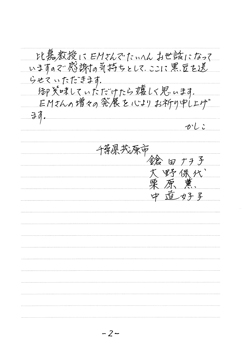 比嘉教授に EMさんでたいへん お世話になって
いますので感謝の気持ちとして、ここに黒豆を送
らせていただきます。
御笑味していただけたら嬉しく思います。
EMさんの増々の発展を心よりお祈り申し上げ
ます。
かしこ
千葉県茂原市
鎗田ナヲ子
大野保代
栗原薫
中道好子
-2-